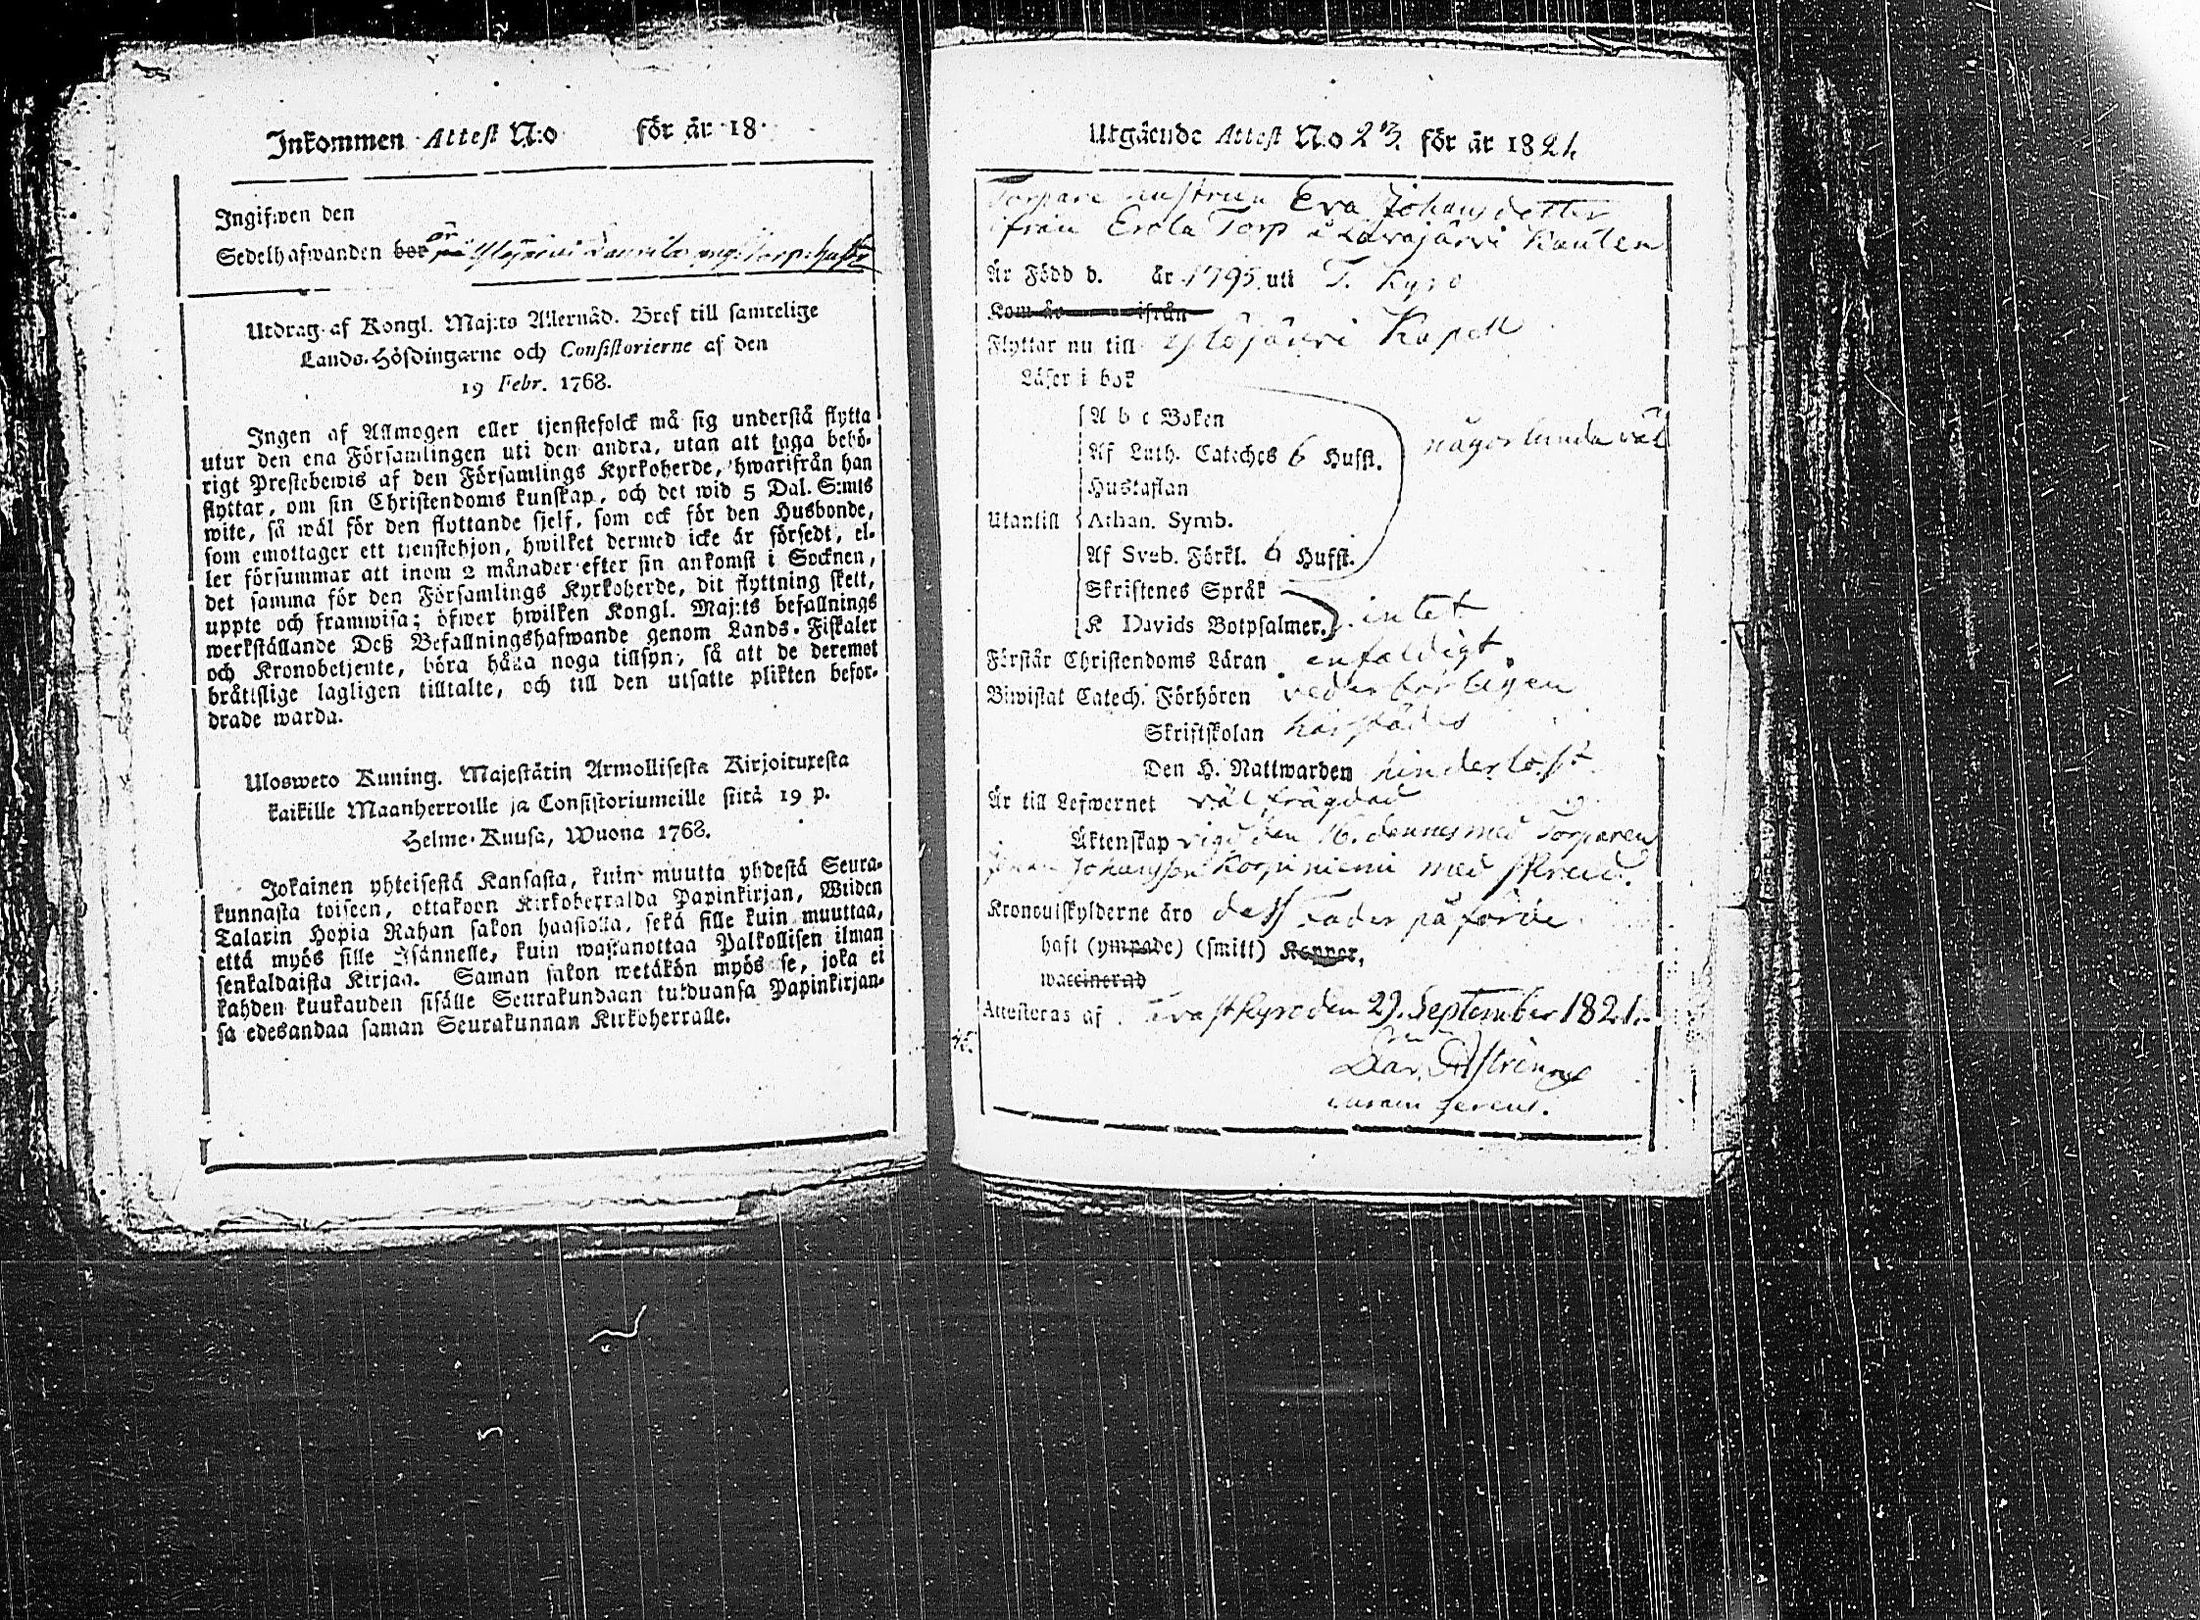 Inkommen Attest N:o för år 18
Ingifwen den
Sedelhafwanden bor är på Ylöjärvi
Utdrag af Kongl. Maj:ts Allernåd. Bref till samtelige
Lands-Höfdingarne och Consistorierne af den
19 Febr. 1768.
Ingen af Allmogen eller tjenstefolck må sig understå flytta
utur den ena Församlingen uti den andra, utan att taga behö-
rigt Prestebewis af den Församlings Kyrkoherde, hwarifrån han
flyttar, om sin Christendoms kunskap, och det wid 5 Dal. S:mts
wite, så wäl för den flyttande sjelf, som ock för den Husbonde,
som emottager ett tjenstehjon, hwilket dermed icke är försedt, el-
ler försummar att inom 2 månader efter sin ankomst i Socknen,
det samma för den Församlings Kyrkoherde, dit flyttning skett,
uppte och framwisa; öfwer hwilken Kongl. Maj:ts befallnings
werkställande Deß Befallningshafwande genom Lands-Fiskaler
och Kronobetjente, böra hålla noga tillsyn; så att de deremot
bråttslige lagligen tilltalte, och till den utsatte plikten befor-
drade warda.
Ulosweto Kuning. Majestätin Armollisesta Kirjoituxesta
kaikille Maanherroille ja Consistoriumeille siitä 19 p.
Helme-Kuusa, Wuona 1768.
Jokainen yhteisestä Kansasta, kuin muutta yhdestä Seura-
kunnasta toiseen, ottakoon Kirkoherralda Papinkirjan, Wiiden
Talarin Hopia Rahan sakon haastolla, sekä sille kuin muuttaa,
että myös sille Isännelle, kuin wastanottaa Palkollisen ilman
senkaldaista Kirjaa. Saman sakon wetäkön myös se, joka ei
kahden kuukauden sisälle Seurakundaan tulduansa Papinkirjan-
sa edesandaa saman Seurakunnan Kirkoherralle.
Utgående Attest N:o 23. för år 1821.
Torpare hustrun Eva Johansdotter
ifrån Erola Torp å Lavajärvi Kanten
Är Född d. år 1795 uti T. Kyro
Kom År ifrån
Flyttar nu till Ylöjärvi Kapell
Läser i bok
A b c Boken
Af Luth. Cateches 6 Hufst. någorlunda väl
Hustaflan
Utantill Athan. Symb.
Af Sveb. Förkl. 6 Hufst.
Skriftenes Språk
K Davids Botpsalmer. intet
Förstår Christendoms Läran enfaldigt
Biwistat Catech. Förhören vederbörligen
Skriftskolan härstädes
Den H. Nattwarden hinderlöst
Är till Lefwernet väl frägdad
Äktenskap vigd den 16. dennes med Torparen
Johansson Korpiniemi med
Kronoutskylderne äro dess Fader påförde
haft (ympade) (smitt) Koppor,
waccinerad
Attesteras af Tavastkyro den 29. September 1821.